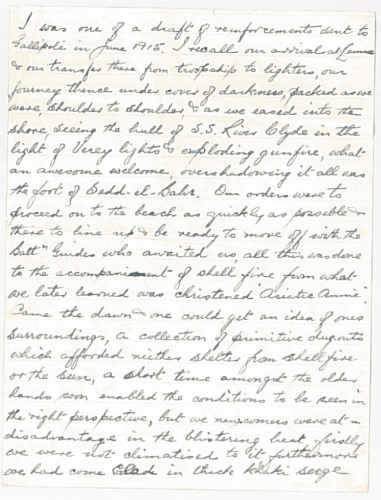 I was one of a draft of reinforcements sent to
Gallipoli in June 1915. I recall our arrival at Lemnos
& our transfer there from troopship to lighters, our
journey thence under cover of darkness, packed as we
were, shoulder to shoulder, & as we eased into the
shore, seeing the hull of S.S. River Clyde in the
light of Verey lights & exploding gunfire, what
an awesome welcome, overshadowing it all was
the foot of Sedd-el-Bahr. Our orders were to
proceed on to the beach as quickly as possible &
there to line up & be ready to move off with the
Battn Guides who awaited us, all this was done
to the accompaniment of shell fire from what
we later learned was christened "Asiatic Annie".
Came the dawn & one could get an idea of ones
surroundings, a collection of primitive dugouts
which afforded neither shelter from shellfire
or the sun, a short time amongst the older
hands soon enabled the conditions to be seen in
the right perspective, but we newcomers were at a
disadvantage in the blistering heat, firstly
we were not climatised to it, furthermore
we had come clad in thick khaki serge